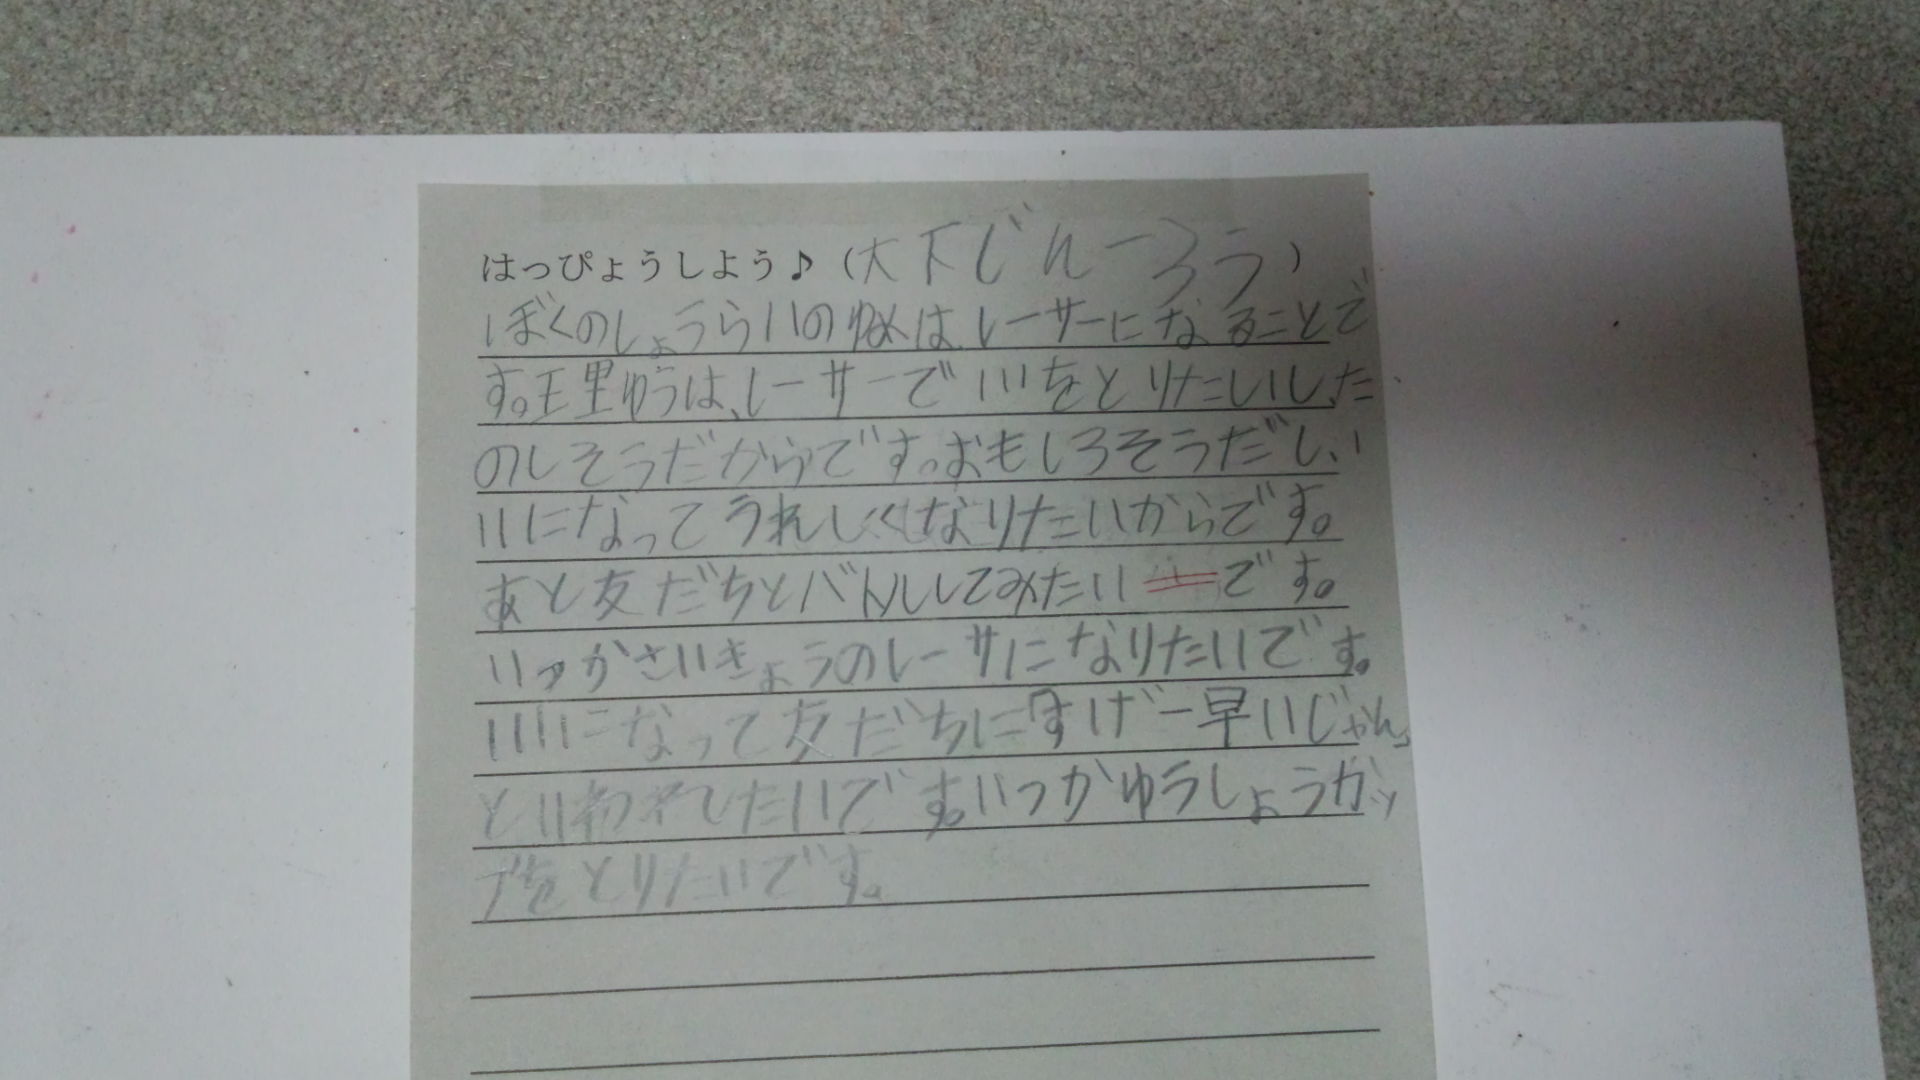 はっぴょうしよう♪(大下じんーろう)
ぼくのしょうらいのゆめは、レーサーになることで
す。王里ゆうは、レーサーで1いをとりたいし、た
のしそうだからです。おもしろそうだし、1
いになってうれしくなりたいからです。
あと友だちとバトルしてみたいです。
いつかさいきょうのレーサーになりたいです。
1いになって友だちにすげー早いじゃん
といわせたいです。いつかゆうしょうカッ
プをとりたいです。